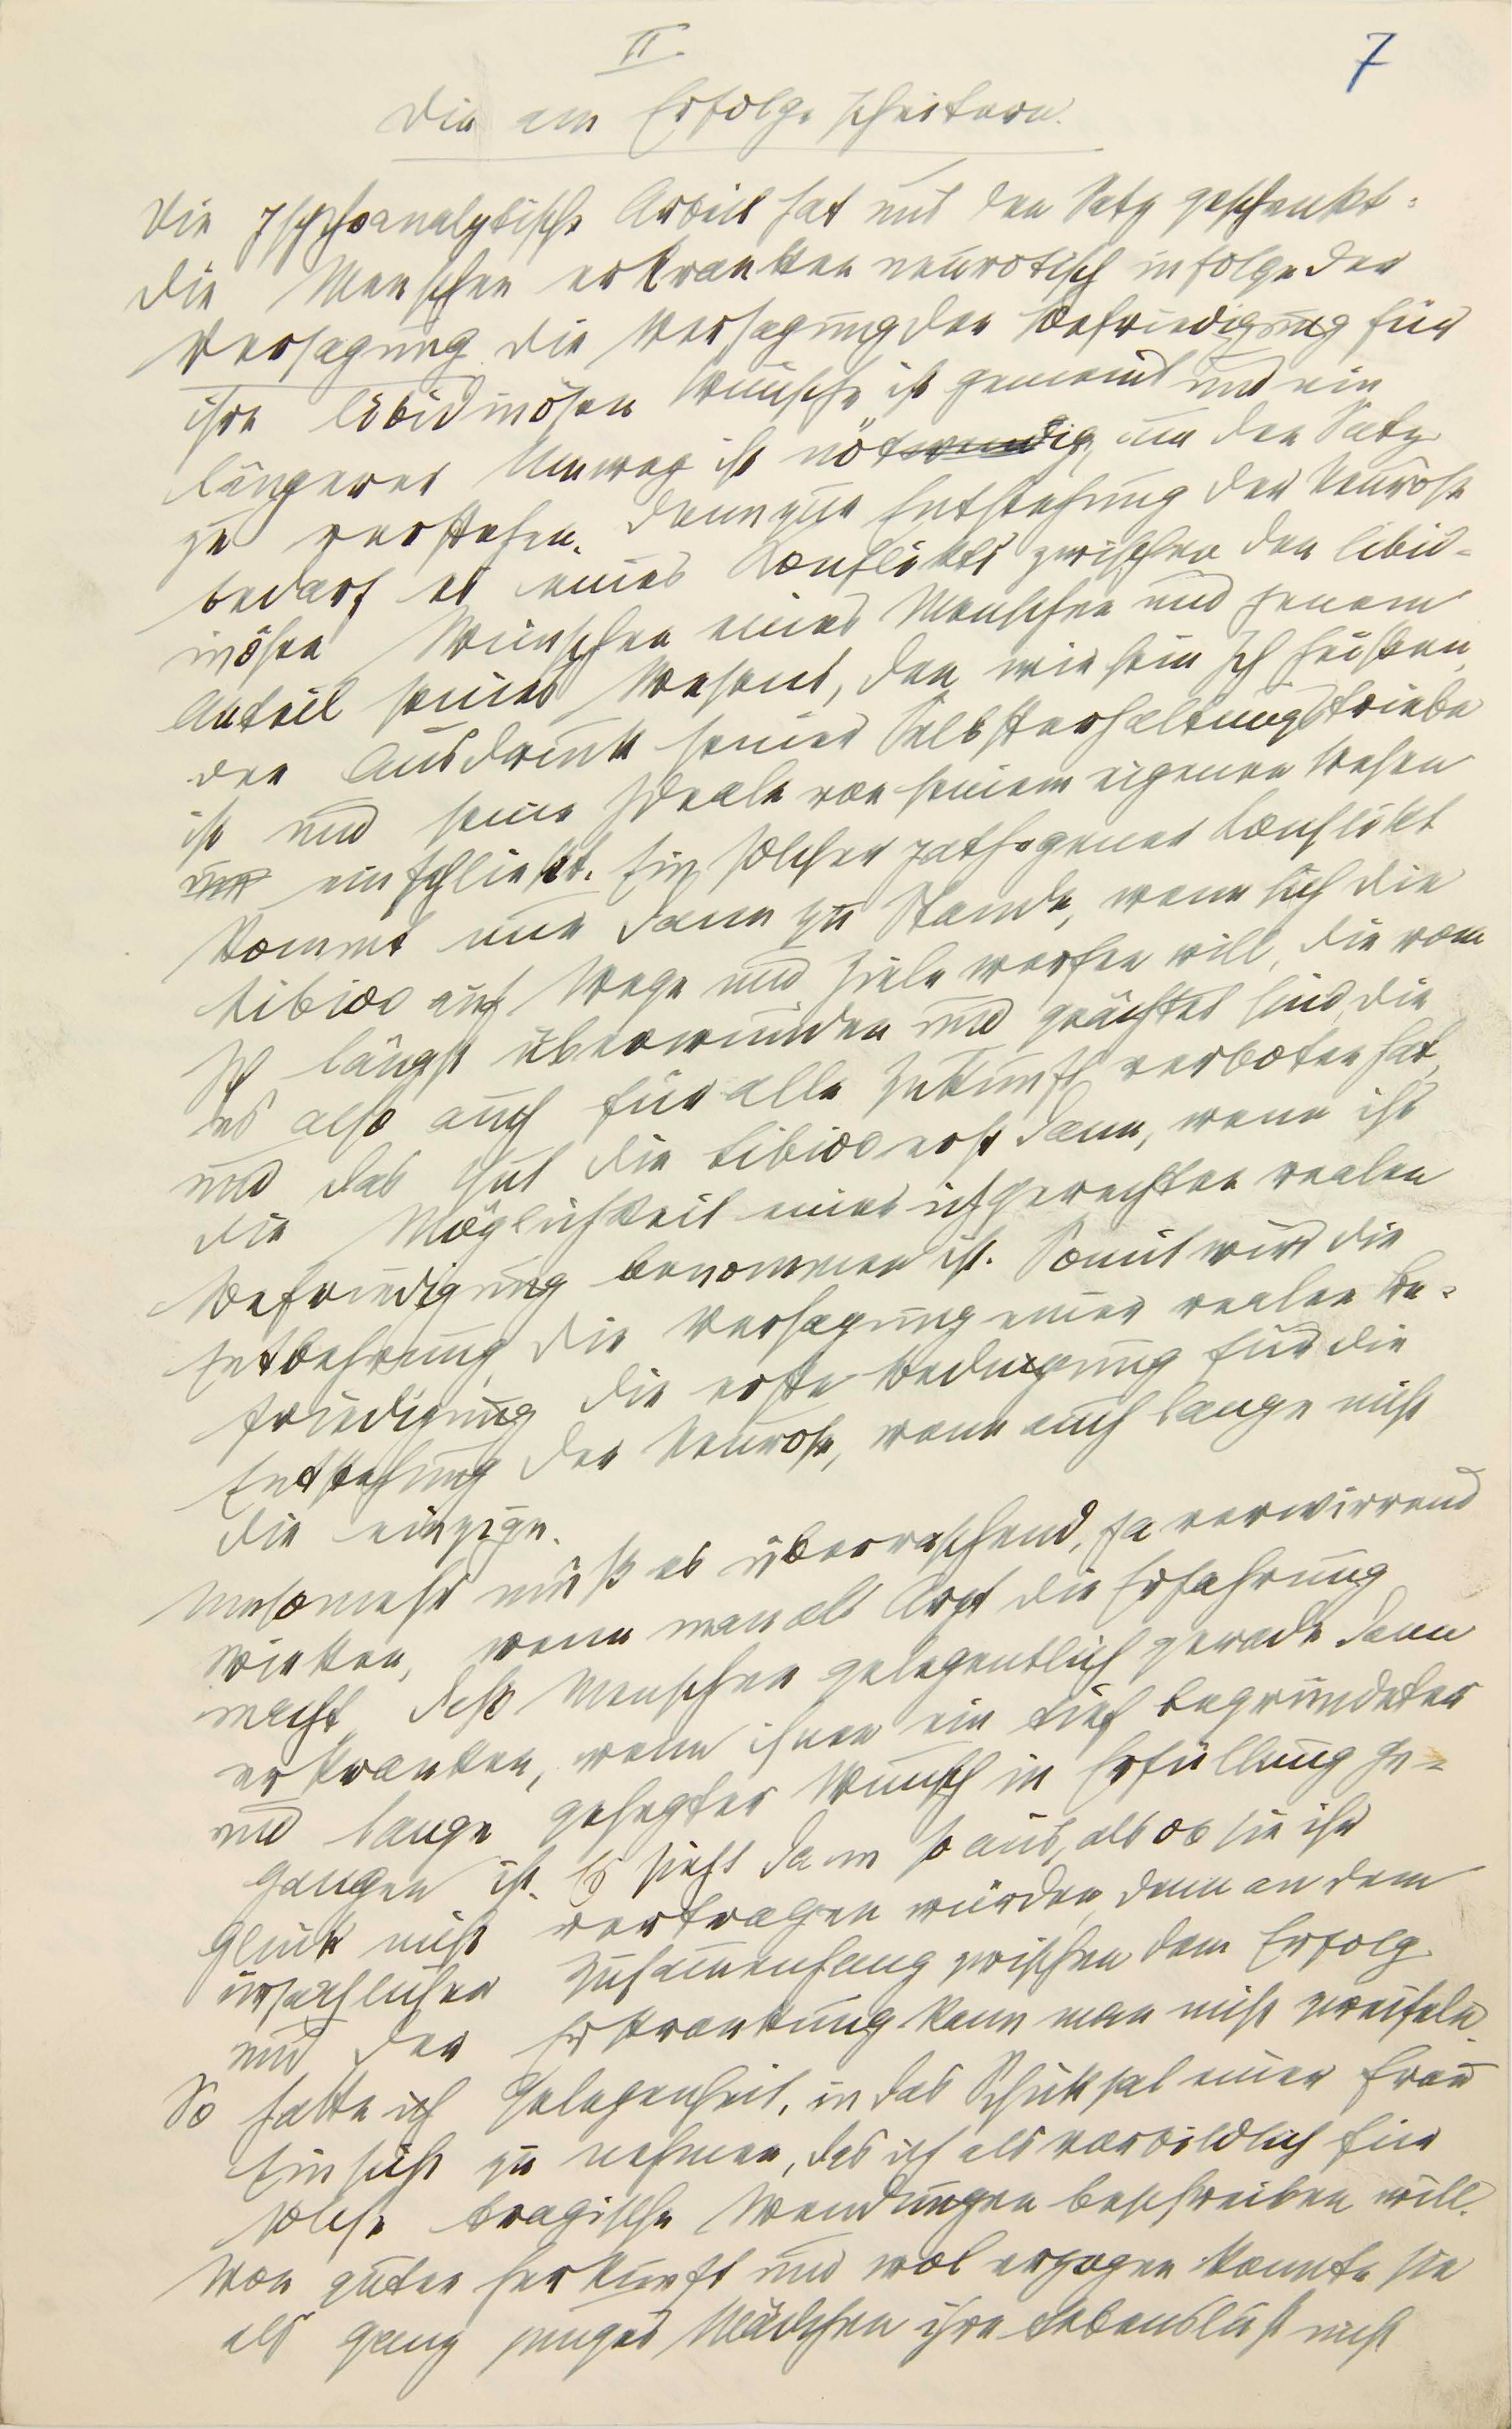 II.
7
Die am Erfolge scheitern.
Die psychoanalytische Arbeit hat uns den Satz geschenkt:
Die Menschen erkranken neurotisch infolge der
Versagung. Die Versagung der Befriedigung für
ihre libidinösen Wünsche ist gemeint und ein
längerer Umweg ist nötwendig, um den Satz
zu verstehen. Denn zur Entstehung der Neurose
bedarf es eines Konflikts zwischen den libid-
inösen Wünschen eines Menschen und jenem
Anteil seines Wesens, den wir sein Ich heißen,
der Ausdruck seiner Selbsterhaltungstriebe
ist und seine Ideale von seinem eigenen Wesen
einschließt. Ein solcher pathogener Konflikt
kommt nur dann zu Stande, wenn sich die
Libido auf Wege und Ziele werfen will, die vom
Ich längst überwunden und geächtet sind, die
es also auch für alle Zukunft verboten hat,
und das thut die Libido erst dann, wenn ihr
die Möglichkeit einer ichgerechten realen
Befriedigung benommen ist. Somit wird die
Entbehrung, die Versagung einer realen Be-
friedigung die erste Bedingung für die
Entstehung der Neurose, wenn auch lange nicht
die einzige.
Umsomehr muß es überraschend, ja verwirrend
wirken, wenn man als Arzt die Erfahrung
macht, daß Menschen gelegentlich gerade dann
erkranken, wenn ihnen ein tief begründeter
und lange gehegter Wunsch in Erfüllung ge-
gangen ist. Es sieht dann so aus, als ob sie ihr
Glück nicht vertragen würden, denn an dem
ursächlichen Zusammenhang zwischen dem Erfolg
und der Erkrankung kann man nicht zweifeln.
So hatte ich Gelegenheit, in das Schicksal einer Frau
Einsicht zu nehmen, das ich als vorbildlich für
solche tragische Wendungen beschreiben will.
Von guter Herkunft und wol erzogen konnte sie
als ganz junges Mädchen ihre Lebenslust nicht